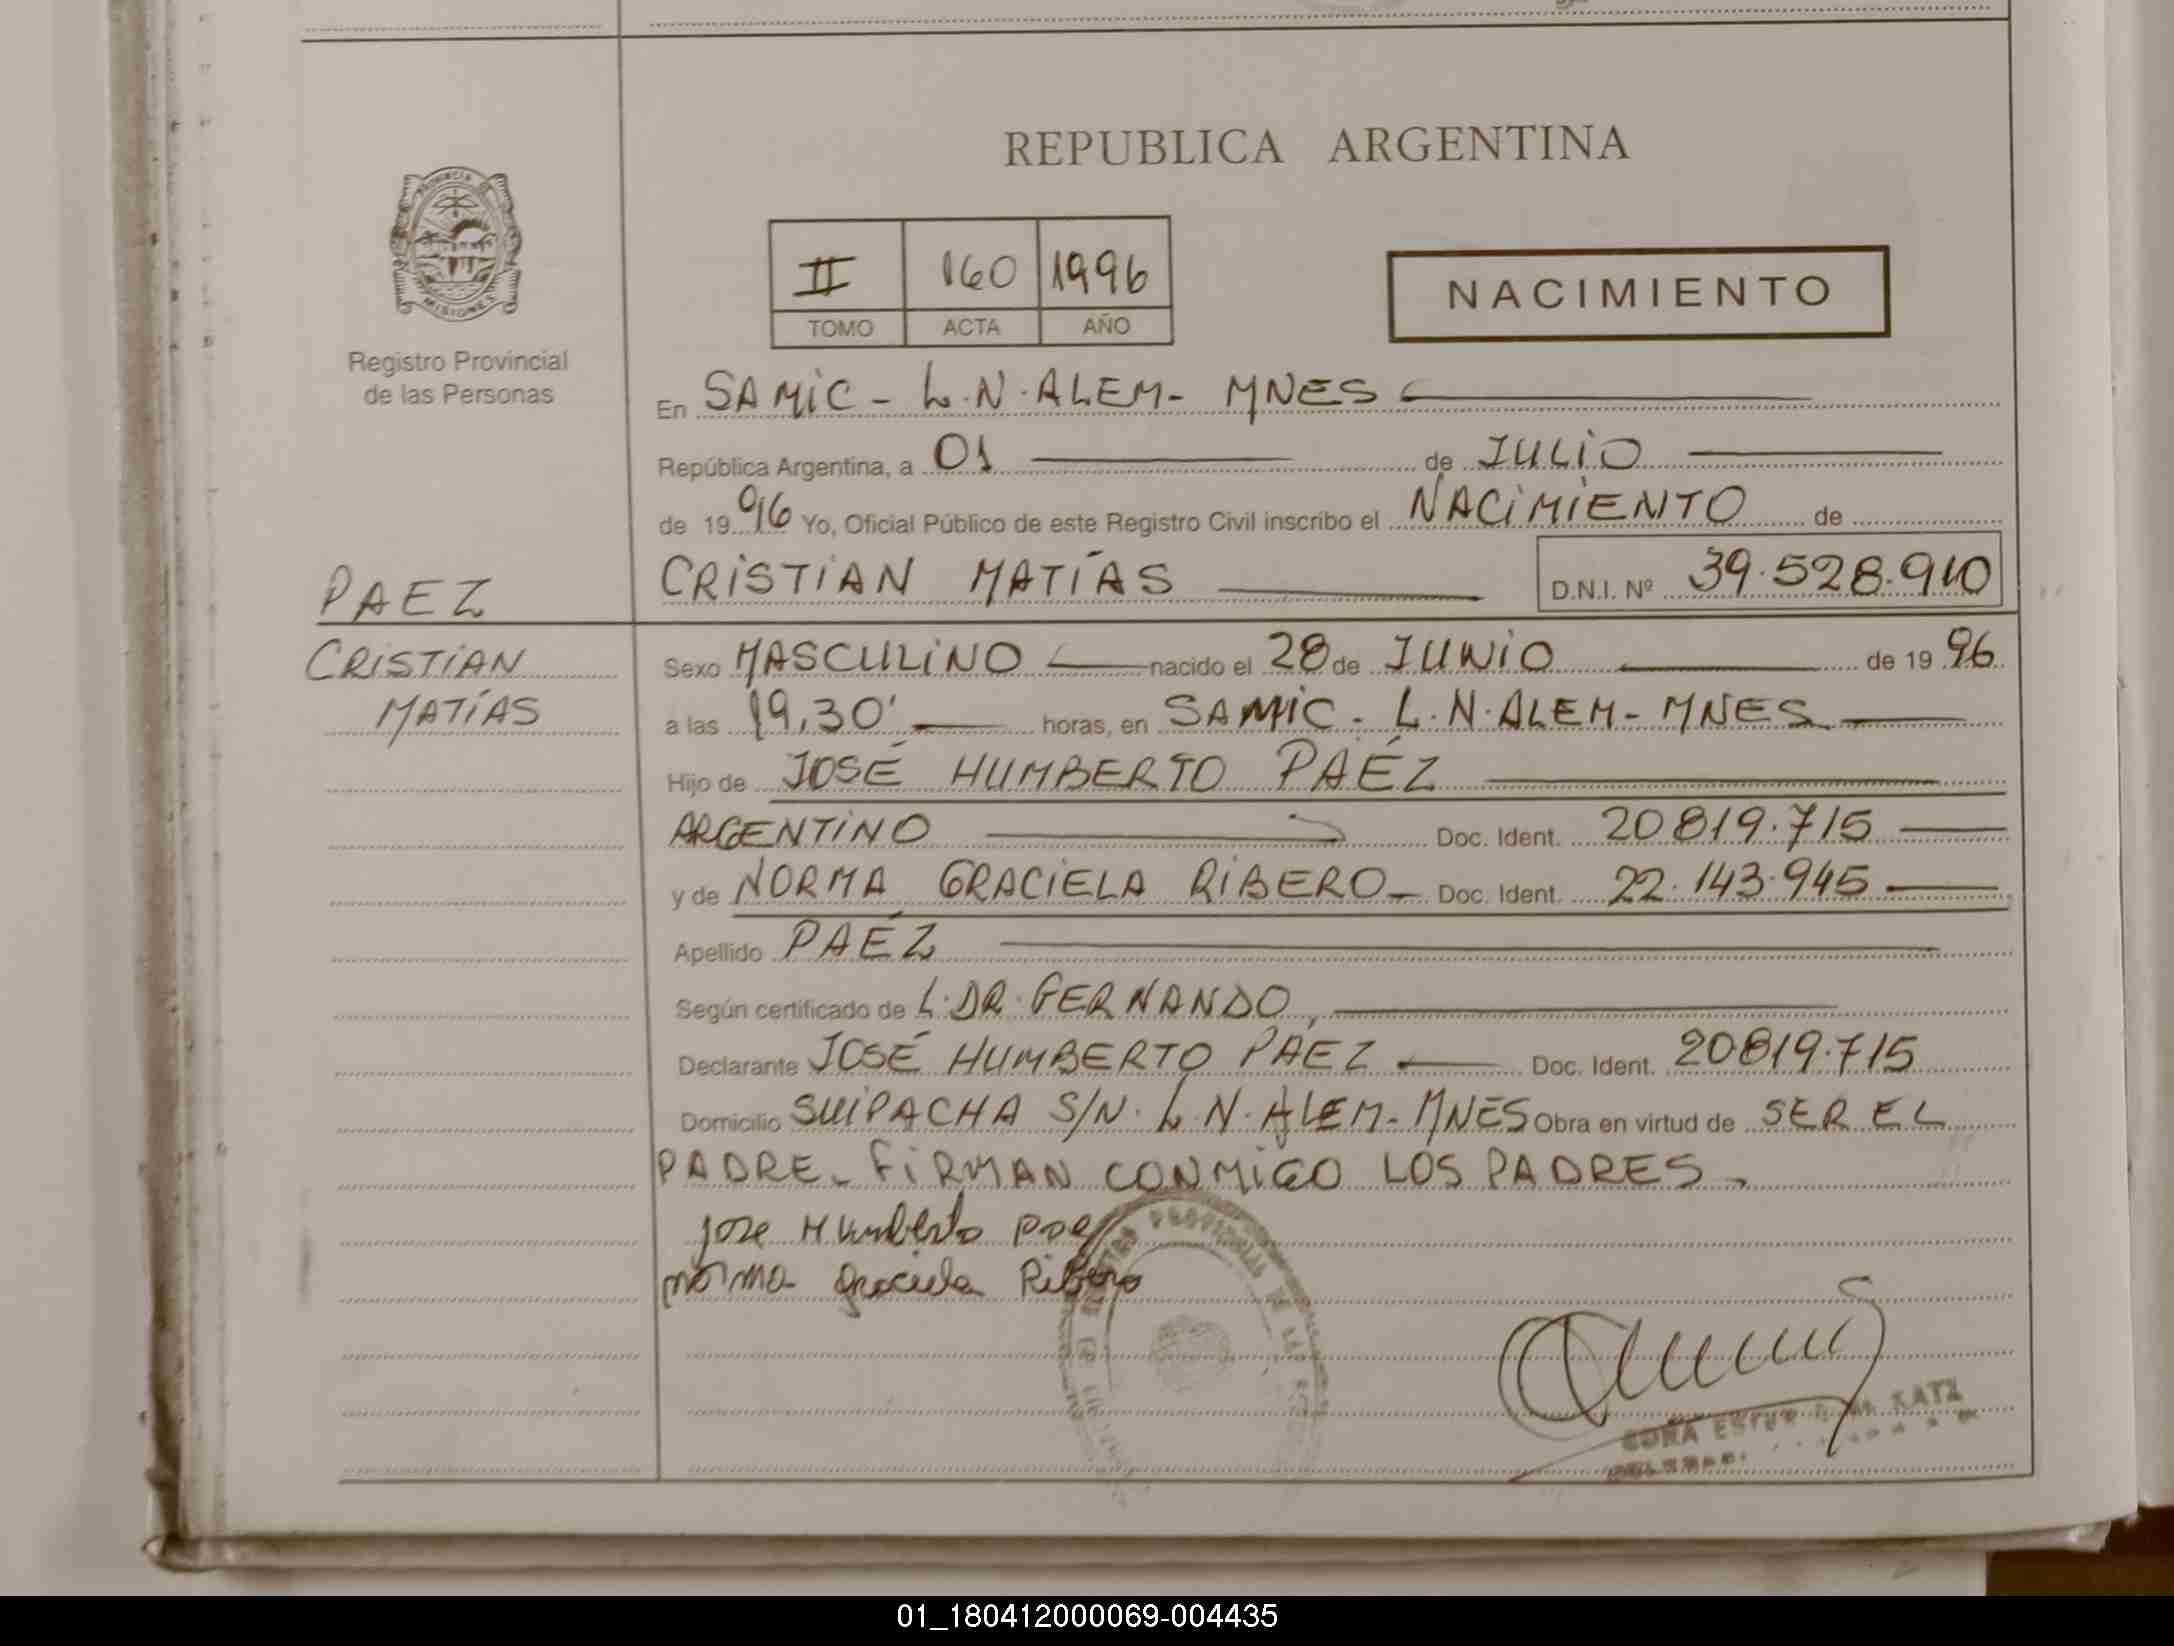 REPUBLICA ARGENTINA
PROVINCIA DE
MISIONES
Registro Provincial
de las Personas
II 160 1996
TOMO ACTA AÑO
NACIMIENTO
En SAMIC - L.N. ALEM - MNES
República Argentina, a 01 de JULIO
de 1996 Yo, Oficial Público de este Registro Civil inscribo el NACIMIENTO de
CRISTIAN MATÍAS D.N.I. Nº 39.528.910
PAEZ
CRISTIAN
MATÍAS
Sexo MASCULINO nacido el 28 de JUNIO de 1996
a las 19,30' horas, en SAMIC - L.N. ALEM - MNES
Hijo de JOSÉ HUMBERTO PAÉZ
ARGENTINO Doc. Ident. 20819.715
y de NORMA GRACIELA RIBERO - Doc. Ident. 22.143.945
Apellido PAÉZ
Según certificado de L. DR. FERNANDO,
Declarante JOSÉ HUMBERTO PÁEZ Doc. Ident. 20819.715
Domicilio SUIPACHA S/N. L.N. ALEM - MNES Obra en virtud de SER EL
PADRE - FIRMAN CONMIGO LOS PADRES -
Jose Humberto Paez
norma graciela Ribero
REGISTRO PROVINCIAL DE LAS
KATZ
01_180412000069-004435